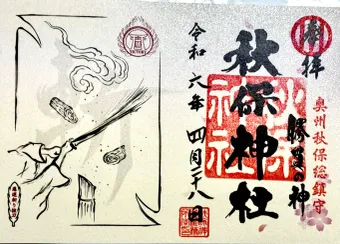 奉拝
奥州秋保総鎮守
勝負の神
秋保神社
令和六年 四月二十八日